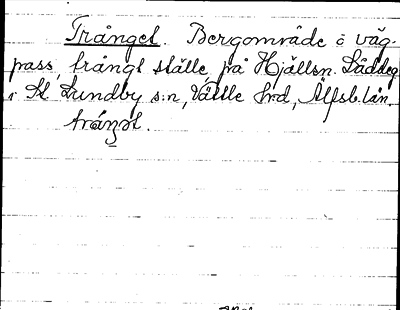 Trånget. Bergområde o väg-
pass, trångt ställe, på Hjällsn. Säddeg
i St Lundby s:n, Vättle hrd, Älfsb. län.